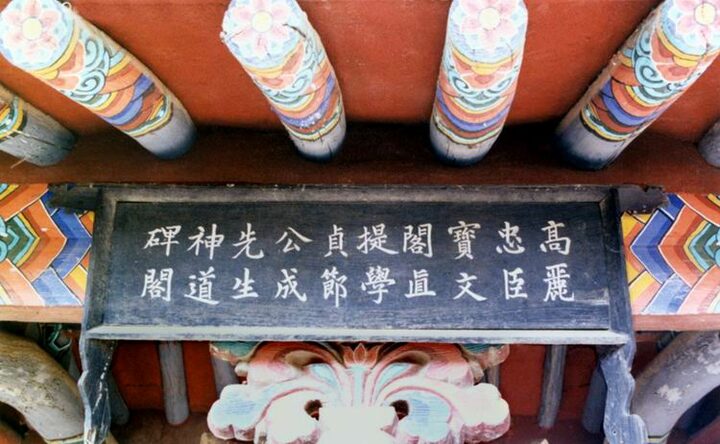 高麗
忠臣
寶文
閣直
提學
貞節
公成
先生
神道
碑閣